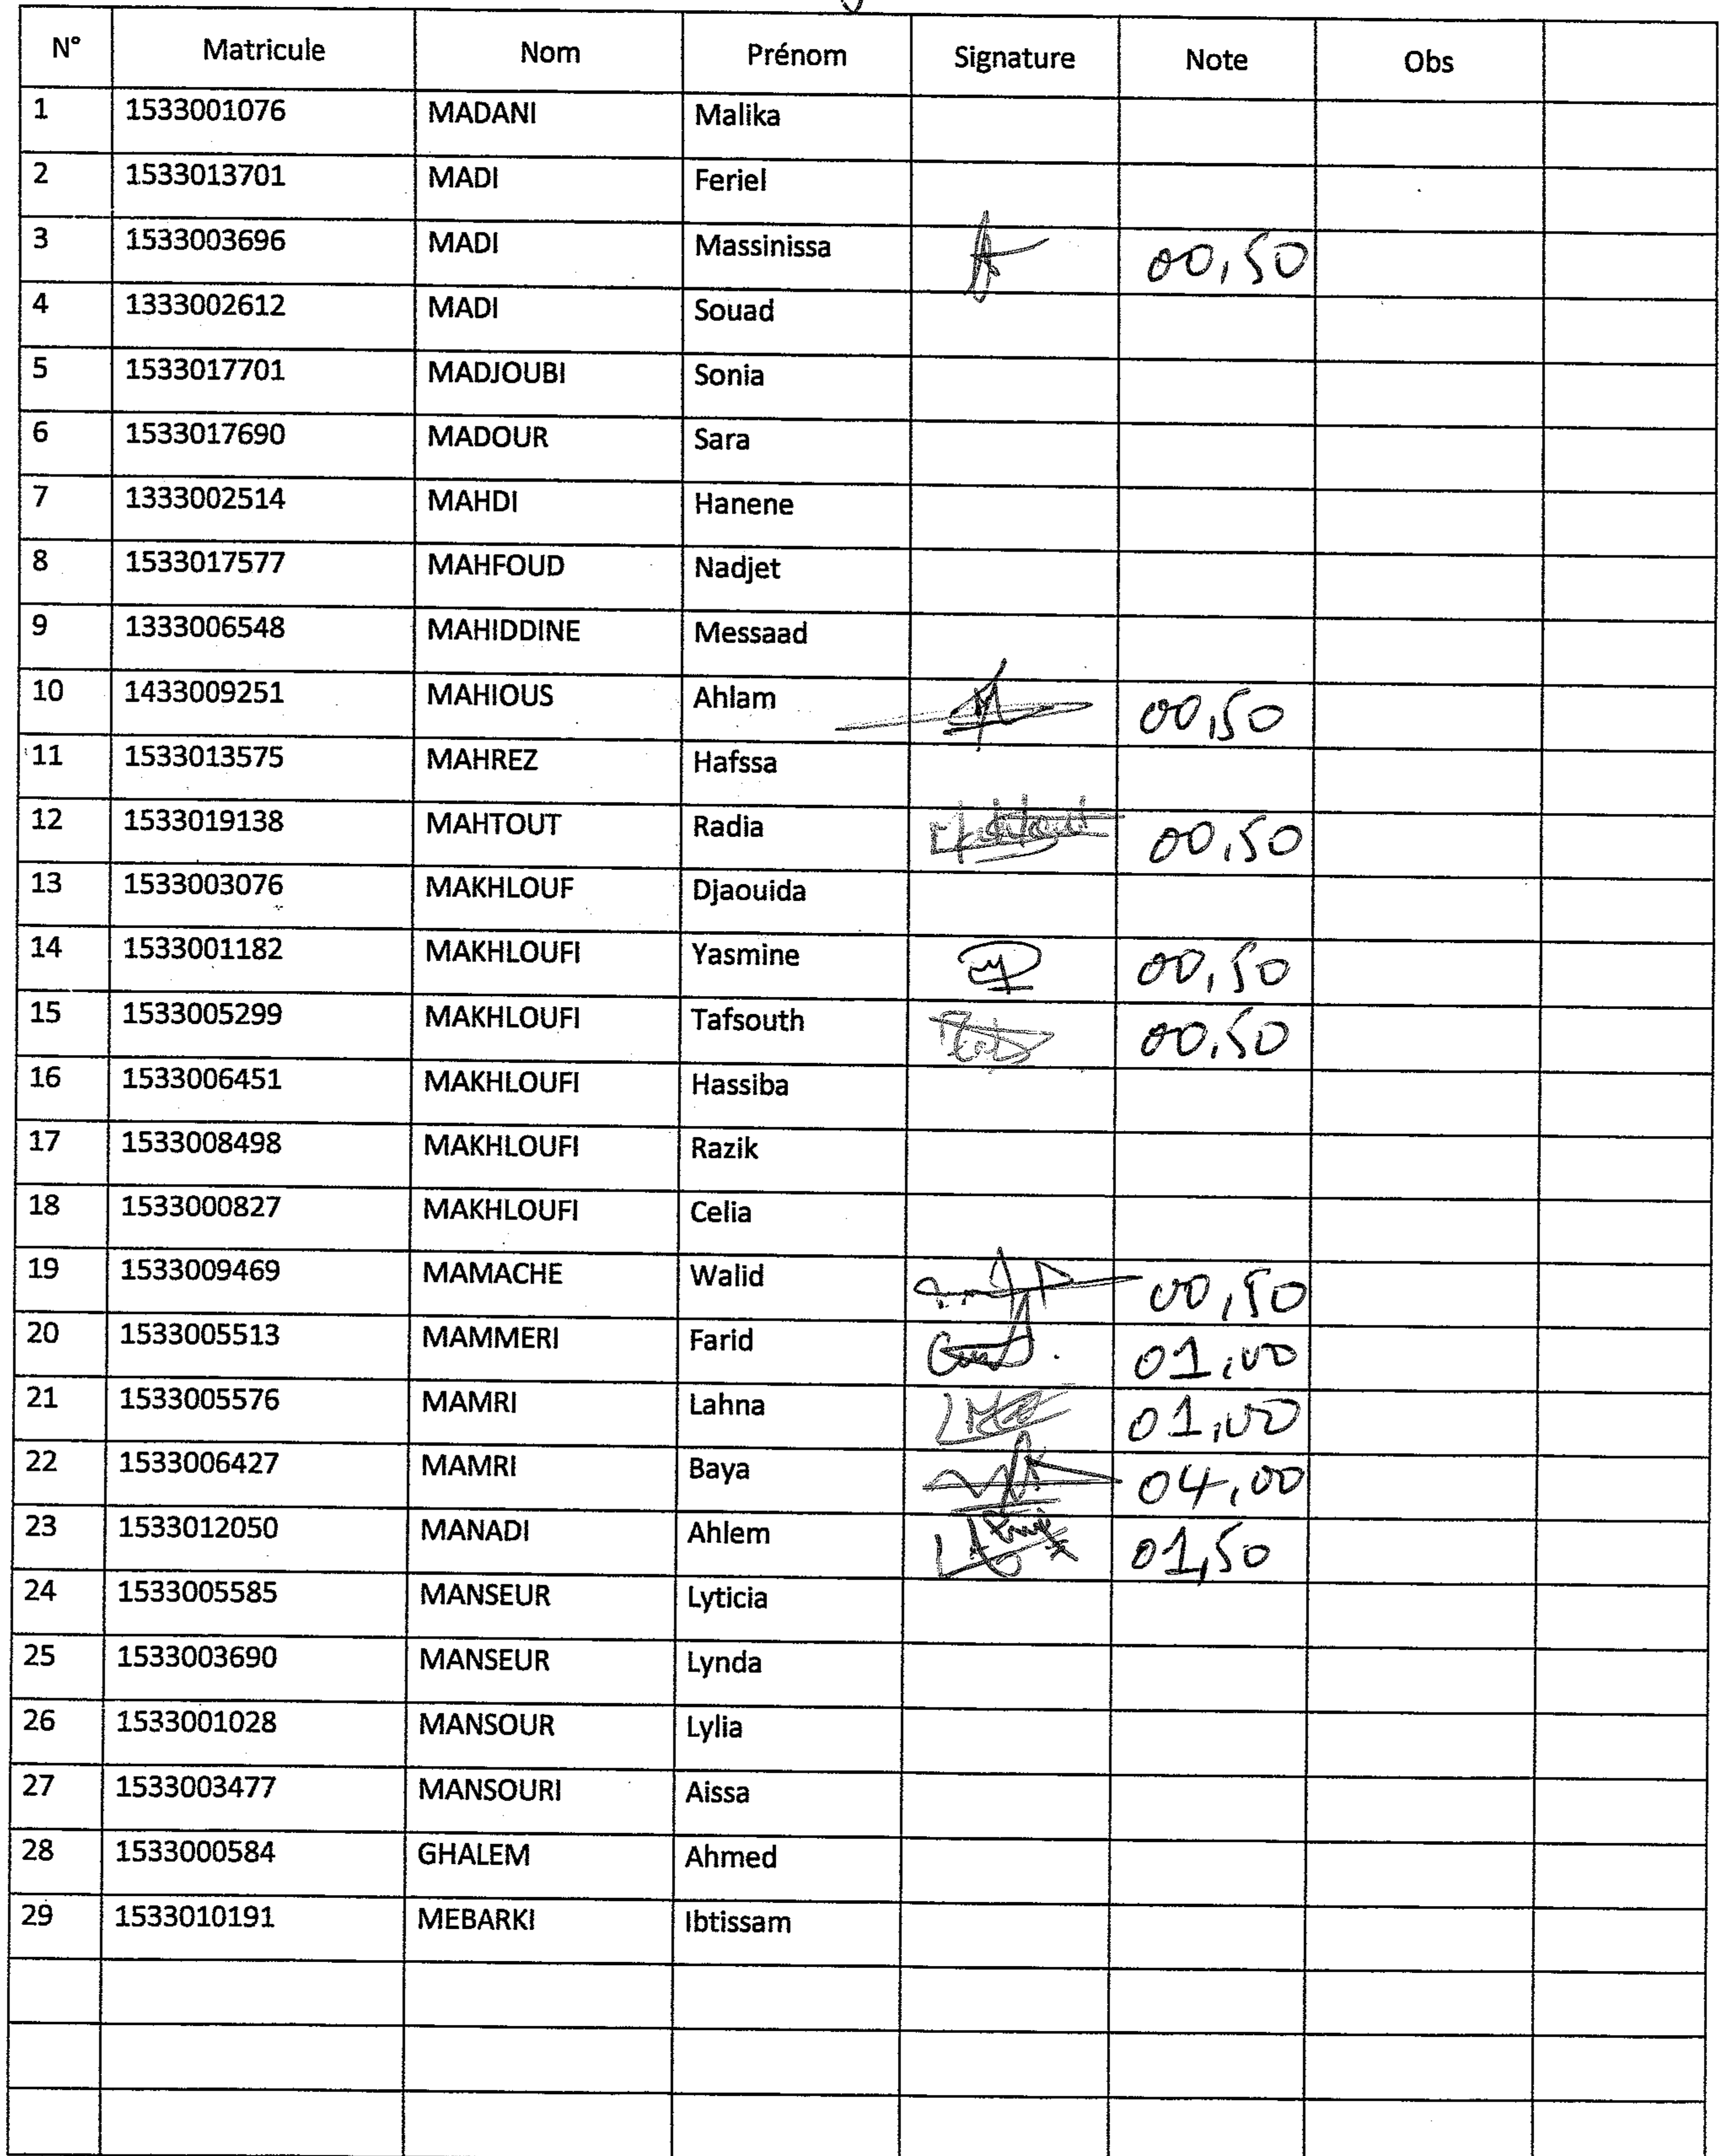 N° Matricule Nom Prénom Signature Note Obs
1 1533001076 MADANI Malika
2 1533013701 MADI Feriel
3 1533003696 MADI Massinissa 00,50
4 1333002612 MADI Souad
5 1533017701 MADJOUBI Sonia
6 1533017690 MADOUR Sara
7 1333002514 MAHDI Hanene
8 1533017577 MAHFOUD Nadjet
9 1333006548 MAHIDDINE Messaad
10 1433009251 MAHIOUS Ahlam 00,50
11 1533013575 MAHREZ Hafssa
12 1533019138 MAHTOUT Radia 00,50
13 1533003076 MAKHLOUF Djaouida
14 1533001182 MAKHLOUFI Yasmine 00,50
15 1533005299 MAKHLOUFI Tafsouth 00,50
16 1533006451 MAKHLOUFI Hassiba
17 1533008498 MAKHLOUFI Razik
18 1533000827 MAKHLOUFI Celia
19 1533009469 MAMACHE Walid 00,50
20 1533005513 MAMMERI Farid 01,00
21 1533005576 MAMRI Lahna 01,00
22 1533006427 MAMRI Baya 04,00
23 1533012050 MANADI Ahlem 01,50
24 1533005585 MANSEUR Lyticia
25 1533003690 MANSEUR Lynda
26 1533001028 MANSOUR Lylia
27 1533003477 MANSOURI Aissa
28 1533000584 GHALEM Ahmed
29 1533010191 MEBARKI Ibtissam